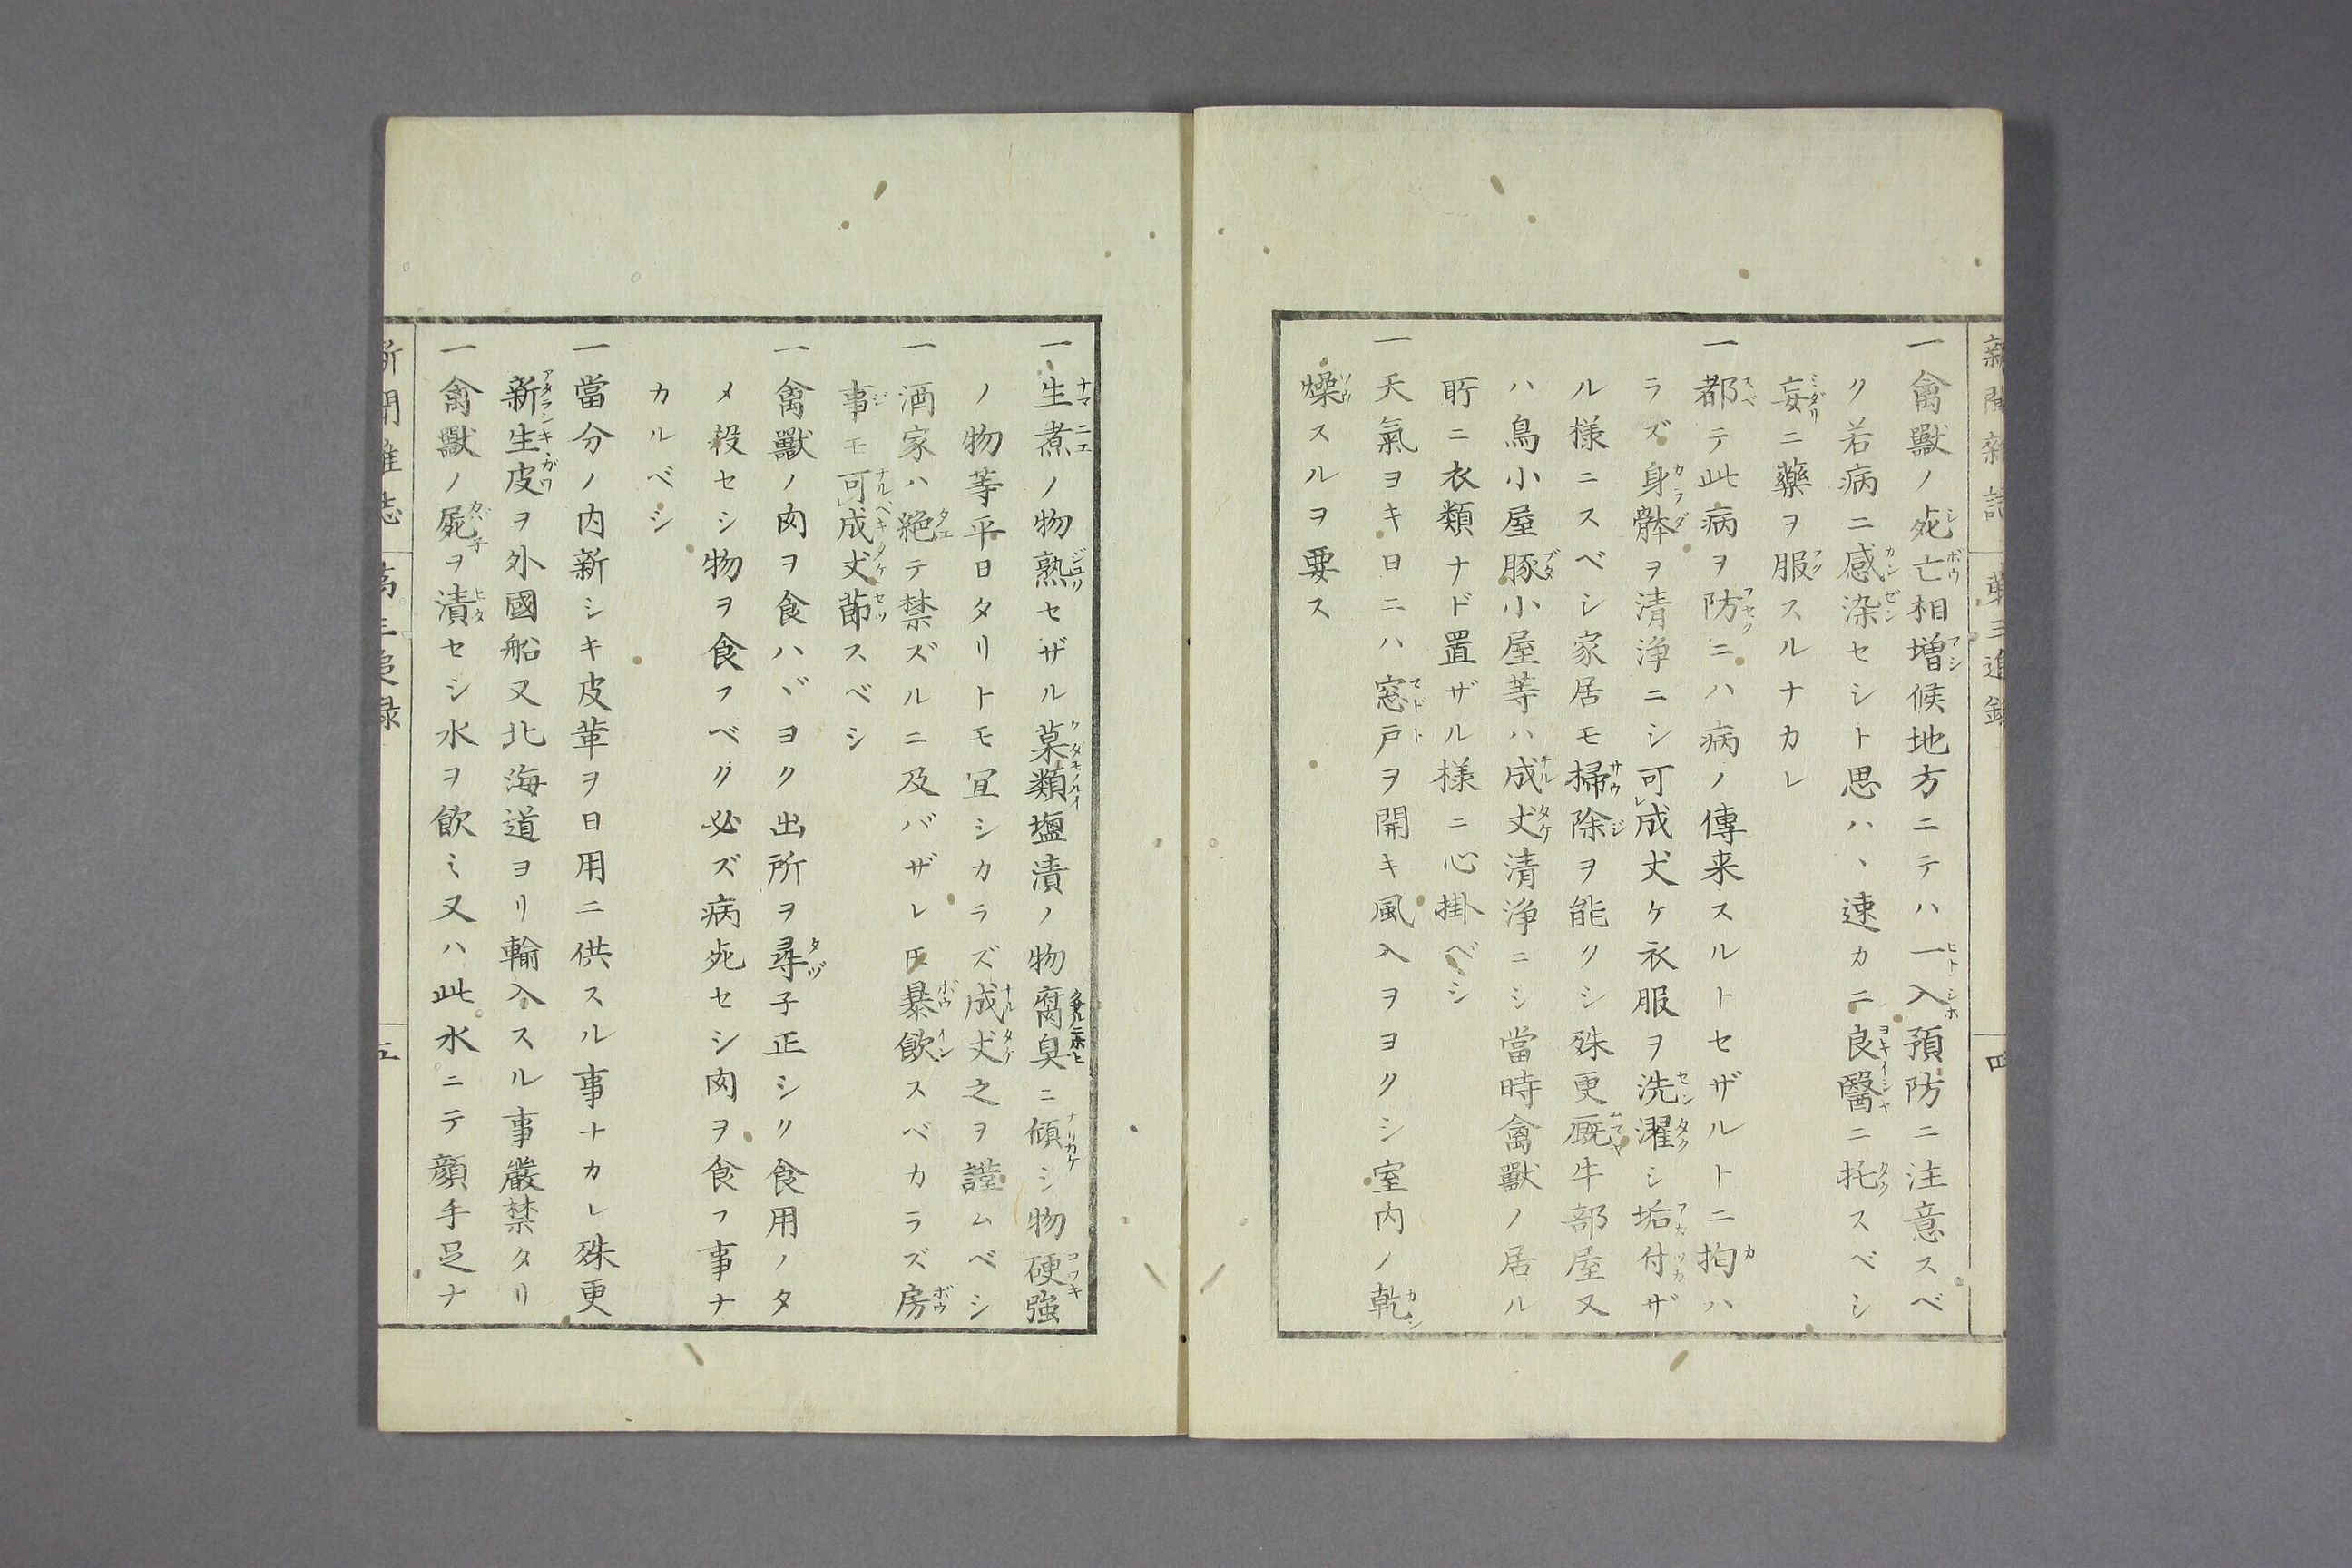 一禽獸ノ死亡相増候地方ニテハ一入預防ニ注意スベ
ク若病ニ感染セシト思ハヽ速カニ良醫ニ托スベシ
妄ニ藥ヲ服スルナカレ
一都テ此病ヲ防ニハ病ノ傳来スルトセザルトニ拘ハ
ラズ身體ヲ清浄ニシ可成丈ケ衣服ヲ洗濯シ垢付ザ
ル様ニスベシ家居モ掃除ヲ能クシ殊更厩牛部屋又
ハ鳥小屋豚小屋等ハ成丈清浄ニシ當時禽獸ノ居ル
所ニ衣類ナド置ザル様ニ心掛ベシ
一天氣ヨキ日ニハ窓戸ヲ開キ風入ヲヨクシ室内ノ乾
燥スルヲ要ス
一生煮ノ物熟セザル菓類塩漬ノ物腐臭ニ傾シ物硬強
ノ物等平日タリトモ宜シカラズ成丈之ヲ謹ムベシ
一酒家ハ絶テ禁ズルニ及バザレ𪜈暴飲スベカラズ房
事モ可成丈節スベシ
一禽獸ノ肉ヲ食ハヾヨク出所ヲ尋子正シク食用ノタ
メ殺セシ物ヲ食フベク必ズ病死セシ肉ヲ食フ事ナ
カルベシ
一當分ノ内新シキ皮革ヲ日用ニ供スル事ナカレ殊更
新生皮ヲ外國船又北海道ヨリ輸入スル事嚴禁タリ
一禽獸ノ屍ヲ漬セシ水ヲ飲ミ又ハ此水ニテ顔手足ナ